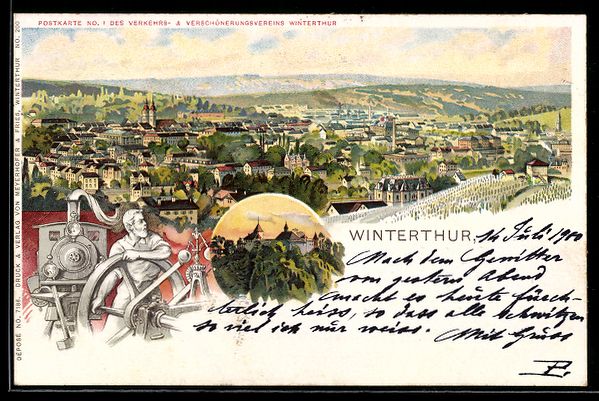 POSTKARTE NO. 1 DES VERKEHRS- & VERSCHÖNERUNGSVEREINS WINTERTHUR
DÉPOSÉ NO. 7186. DRUCK & VERLAG VON MEYERHOFER & FRIES, WINTERTHUR NO. 200
WINTERTHUR, 14 Juli 1900
Nach dem Gewitter
von gestern Abend
macht es heute fürch-
terlich heiss, so dass alle schwitzen
so viel ich nur weiss.
Mit Gruss